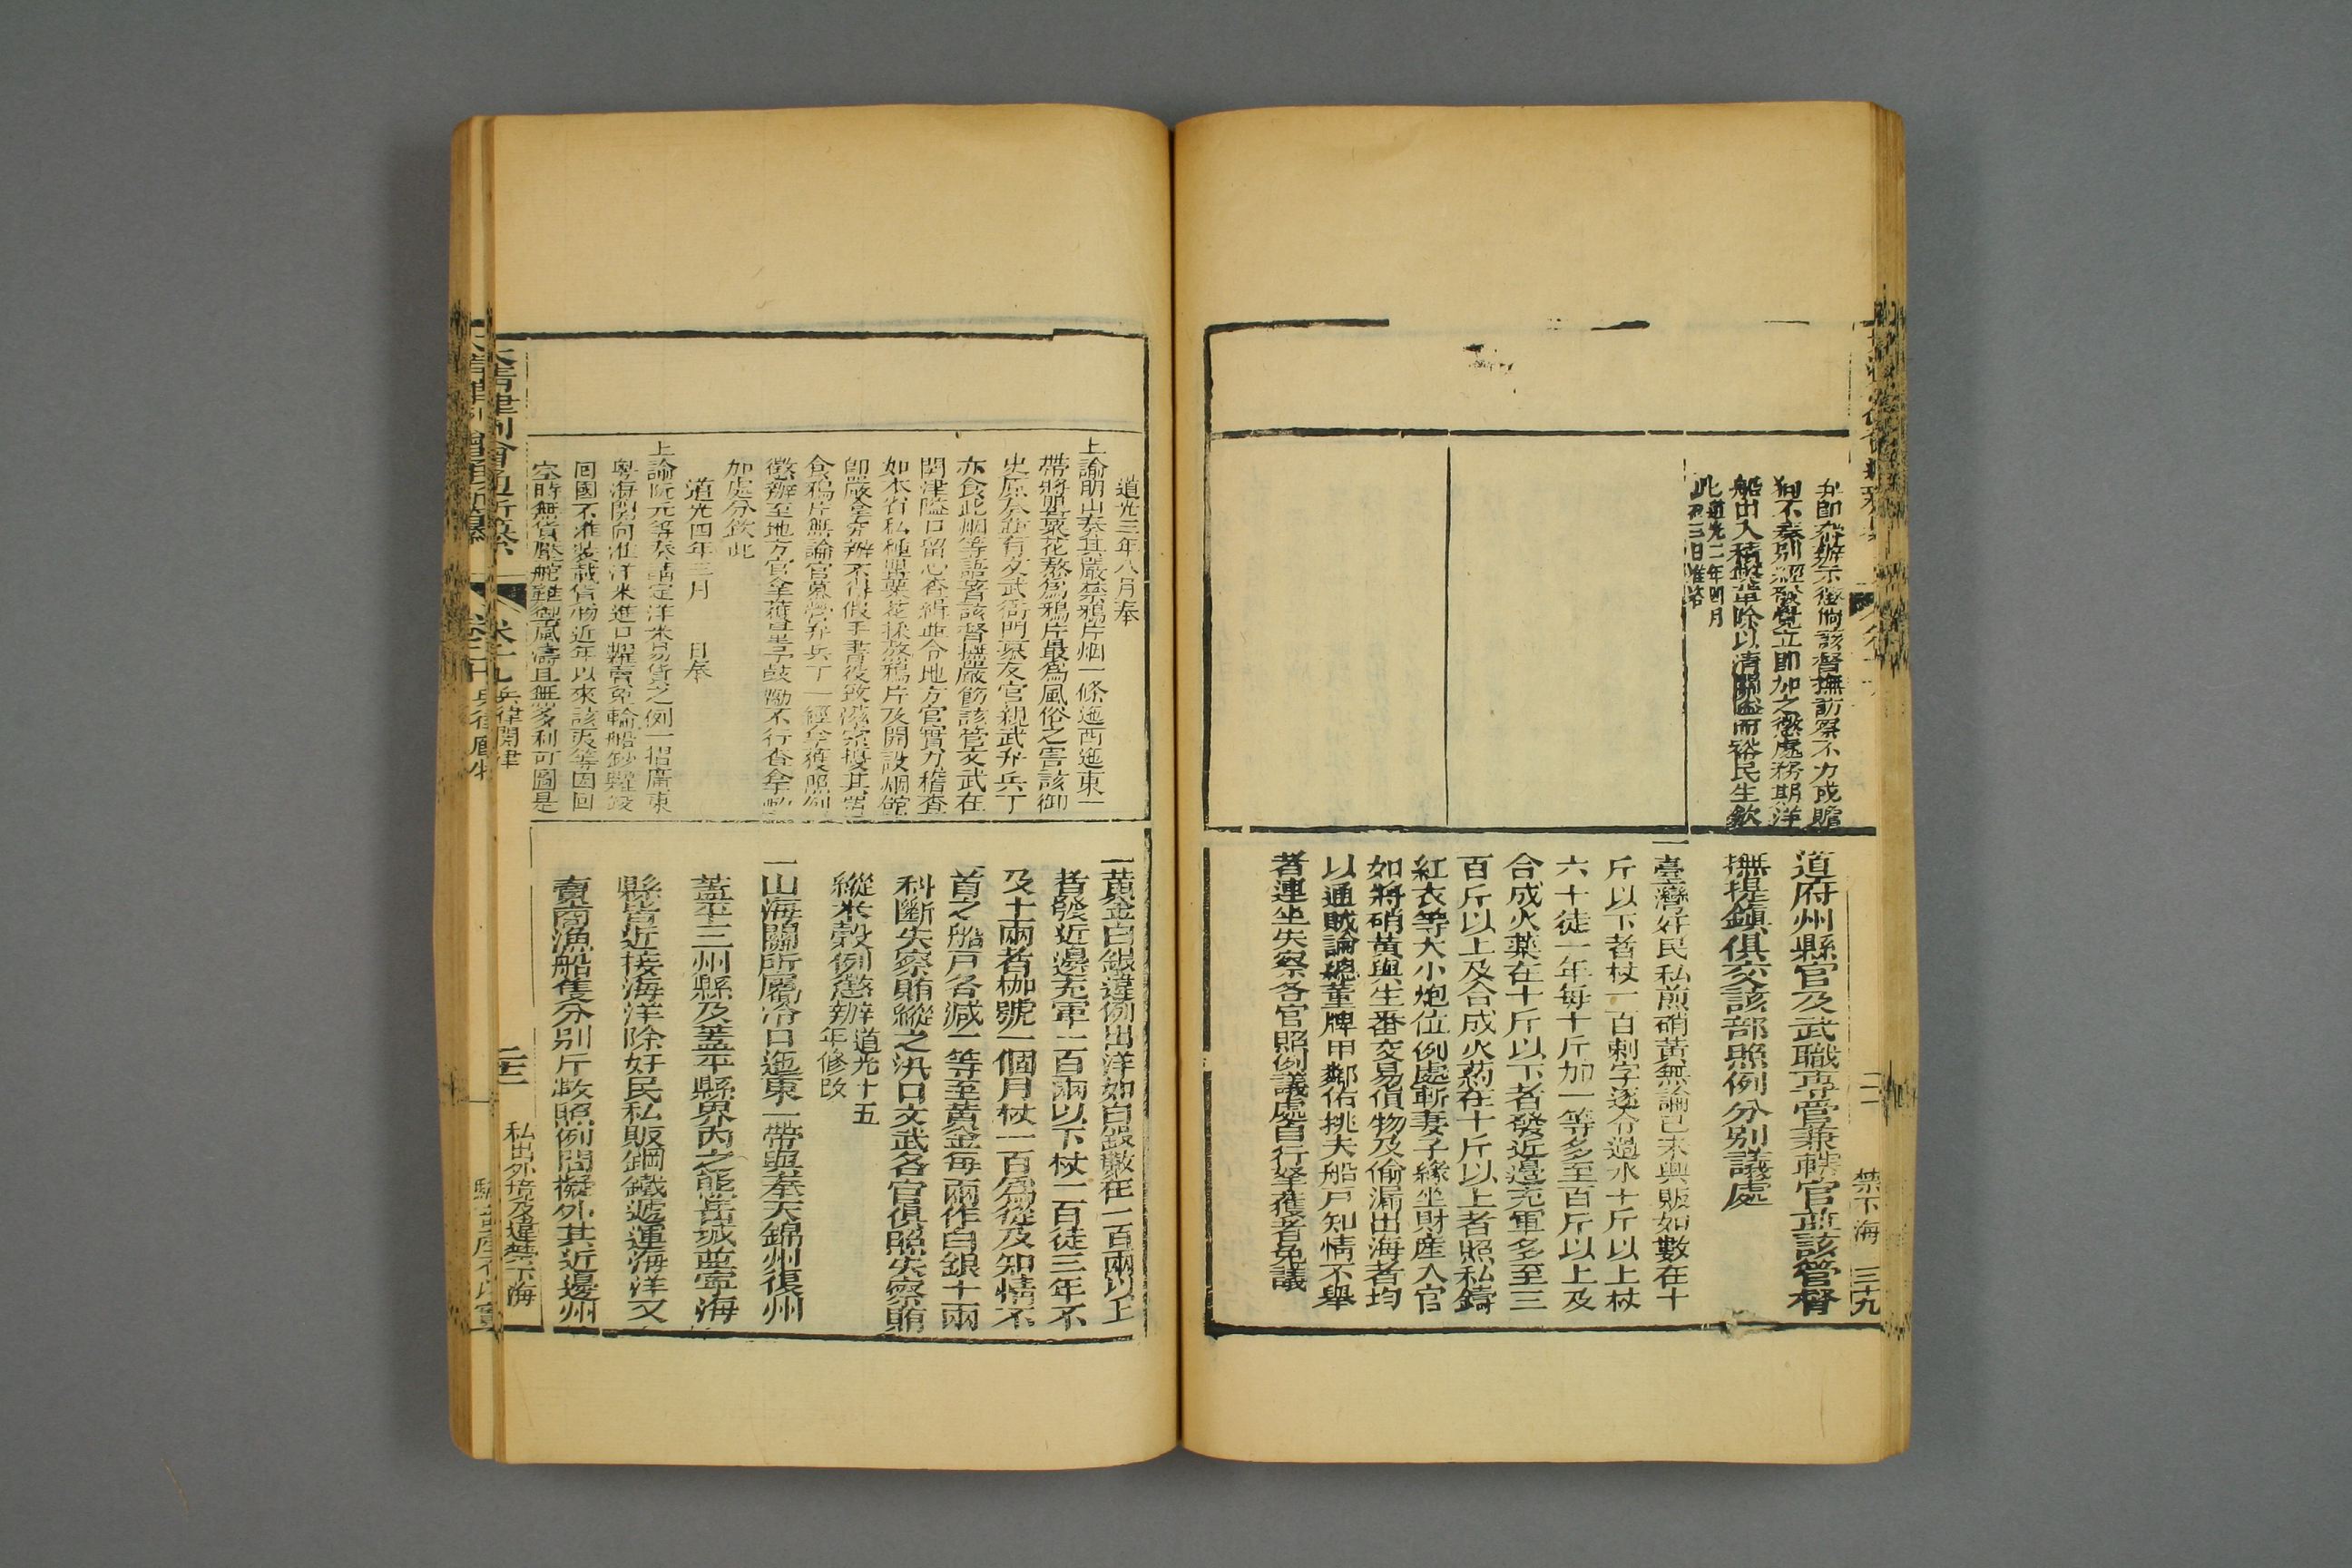 弁即根辦示懲倘該督撫訪察不力或瞻
狥不奏別經發覺立即加之懲處務期洋
船出入積弊革除以清關隘而裕民生欽
此道光二年四月
道府州縣官及武職專管兼轄官並該管督
撫提鎮俱交該部照例分別議處
一臺灣奸民私煎硝黃無論已未興販如數在十
斤以下者杖一百刺字逐令過水十斤以上杖
六十徒一年每十斤加一等多至百斤以上及
合成火藥在十斤以下者發近邊充軍多至三
百斤以上及合成火葯在十斤以上者照私鑄
紅衣等大小炮位例處斬妻子緣坐財產入官
如將硝黃與生番交易偵物及偷漏出海者均
以通賊論總董牌甲鄰佑挑夫船戶知情不舉
者連坐失察各官照例議處自行拏獲者免議
禁下海 三十九
道光三年八月奉
上諭明山奏其嚴禁鴉片烟一條迤西迤東一
帶將罌粟花熬為鴉片最為風俗之害該御
史原奏並有文武衙門幕友官親武弁兵丁
亦食此烟等語著該督撫嚴飭該管文武在
關津隘口留心查緝並令地方官實力稽查
如本省私種罌粟花採熬鴉片及開設烟館
即嚴拏究辦不得假手書役致滋索擾其買
食鴉片無論官幕營弁兵丁一經拏獲照例
懲辦至地方官拏獲
加處分欽此
道光四年三月 日奉
上諭阮元等奏請定洋米易貨之例一摺廣東
粵海關向准洋米進口糶賣免輸船鈔糶竣
回國不准裝載貨物近年以來該夷等因回
空時無貨壓艙難禦風濤且無多利可圖是
一黃金白銀違例出洋如白銀數在一百兩以上
者發近邊充軍一百兩以下杖一百徒三年不
及十兩者枷號一個月杖一百為從及知情不
首之船戶各減一等至黃金每兩作白銀十兩
科斷失察賄縱之汛口文武各官俱照失察賄
縱米穀例懲辦道光十五
年修改
一山海關所屬冷口迤東一帶與奉天錦州復州
蓋平三州縣及蓋平縣界內之熊岳城並寧海
縣皆近接海洋除奸民私販鋼鐵遞運海洋又
賣商漁船隻分別斤數照例問擬外其近邊州
大清律例會通新纂 卷十九 兵律關津 三 私出外境及違禁下海